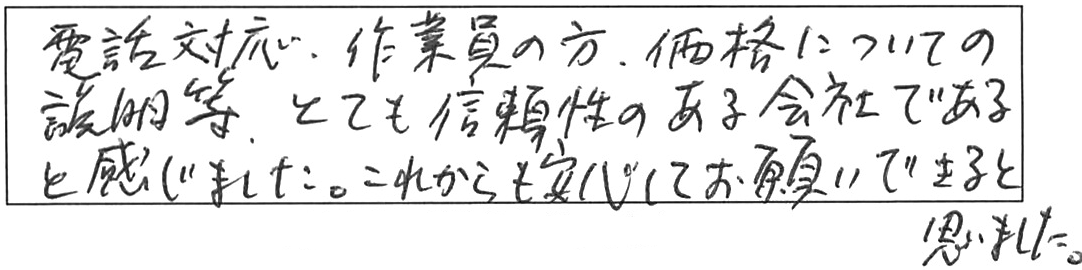 電話対応、作業員の方、価格についての
説明等、とても信頼性のある会社である
と感じました。これからも安心してお願いできると
思いました。